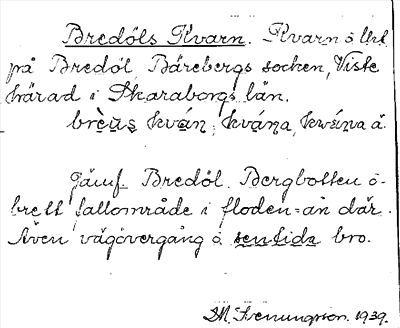 Bredöls Kvarn. Kvarn o
på Bredöl, Bärebergs socken, Viste
härad i Skaraborgs län.
brèus kván, kvána, kwána å.
Jämf. Bredöl. Bergbotten o-
brett fallområde i floden=ån där.
Även vägövergång o sentida bro.
M. Svenungson. 1939.